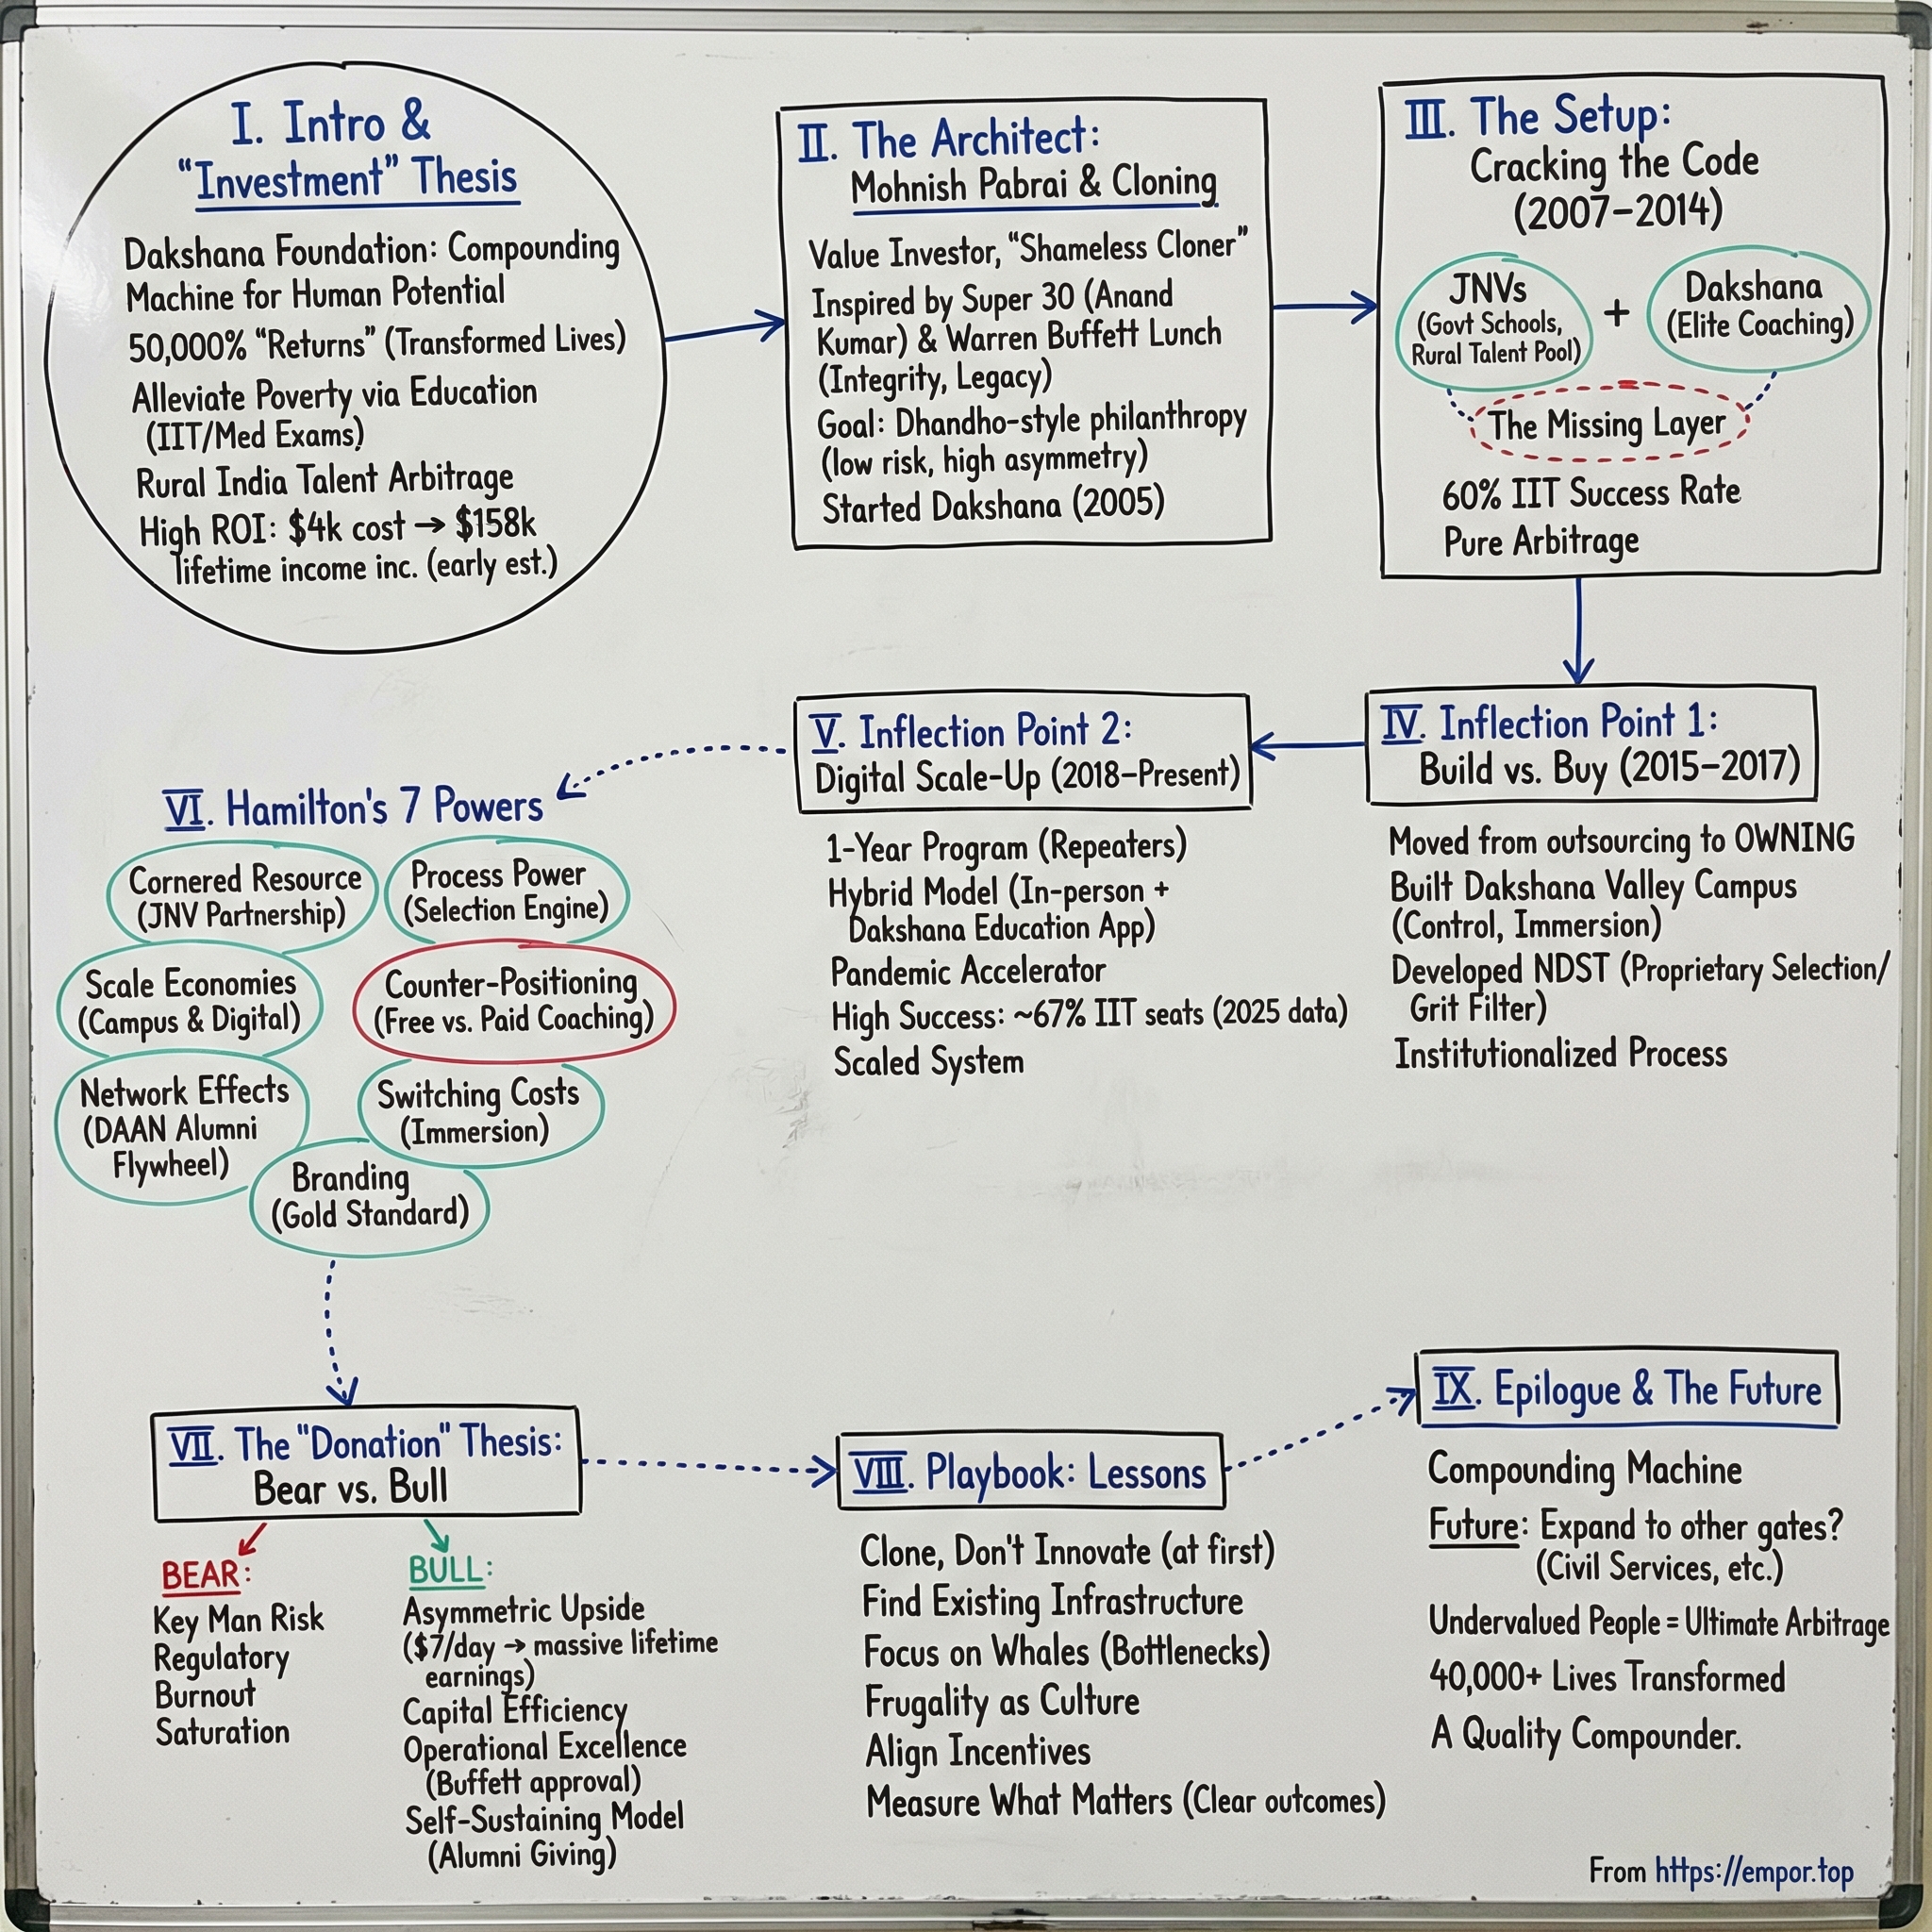 I. Intro &
"Investment" Thesis
Dakshana Foundation: Compounding
Machine for Human Potential
50,000% "Returns" (Transformed Lives)
Alleviate Poverty via Education
(IIT/Med Exams)
Rural India Talent Arbitrage
High ROI: $4k cost → $158k
lifetime income inc. (early est.)
II. The Architect:
Mohnish Pabrai & Cloning
Value Investor, "Shameless Cloner"
Inspired by Super 30 (Anand
Kumar) & Warren Buffett Lunch
(Integrity, Legacy)
Goal: Dhandho-style philanthropy
(low risk, high asymmetry)
Started Dakshana (2005)
III. The Setup:
Cracking the Code
(2007–2014)
JNVs
(Govt Schools,
Rural Talent Pool)
+
Dakshana
(Elite Coaching)
The Missing Layer
60% IIT Success Rate
Pure Arbitrage
IV. Inflection Point 1:
Build vs. Buy (2015–2017)
Moved from outsourcing to OWNING
Built Dakshana Valley Campus
(Control, Immersion)
Developed NDST (Proprietary Selection/
Grit Filter)
Institutionalized Process
V. Inflection Point 2:
Digital Scale-Up (2018–Present)
1-Year Program (Repeaters)
Hybrid Model (In-person +
Dakshana Education App)
Pandemic Accelerator
High Success: ~67% IIT seats (2025 data)
Scaled System
VI. Hamilton's 7 Powers
Cornered Resource
(JNV Partnership)
Process Power
(Selection Engine)
Scale Economies
(Campus & Digital)
Counter-Positioning
(Free vs. Paid Coaching)
Network Effects
(DAAN Alumni
Flywheel)
Switching Costs
(Immersion)
Branding
(Gold Standard)
VII. The "Donation" Thesis:
Bear vs. Bull
BEAR:
Key Man Risk
Regulatory
Burnout
Saturation
BULL:
Asymmetric Upside
($7/day → massive lifetime
earnings)
Capital Efficiency
Operational Excellence
(Buffett approval)
Self-Sustaining Model
(Alumni Giving)
VIII. Playbook: Lessons
Clone, Don't Innovate (at first)
Find Existing Infrastructure
Focus on Whales (Bottlenecks)
Frugality as Culture
Align Incentives
Measure What Matters (Clear outcomes)
IX. Epilogue & The Future
Compounding Machine
Future: Expand to other gates?
(Civil Services, etc.)
Undervalued People = Ultimate Arbitrage
40,000+ Lives Transformed
A Quality Compounder.
From https://empor.top